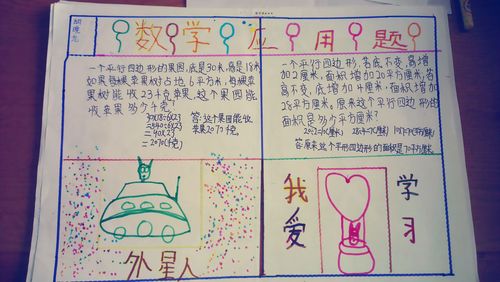 数学应用题
一个平行四边形的果园,底是30米,高是18米
如果每棵苹果树占地6平方米,每棵苹
果树能收23千克苹果,这个果园能
收苹果多少千克?
30×18÷6×23
=540÷6×23
=90×23
=2070(千克)
答:这个果园能收
苹果2070千克。
一个平行四边形,若底不变,高增
加2厘米,面积增加20平方厘米;若
高不变,底增加4厘米,面积增加
28平方厘米。原来这个平行四边形的
面积是多少平方厘米?
20÷2=10(厘米)
28÷4=7(厘米)
10×7=70(平方厘米)
答:原来这个平行四边形的面积是70平方厘米。
外星人
我爱
学习